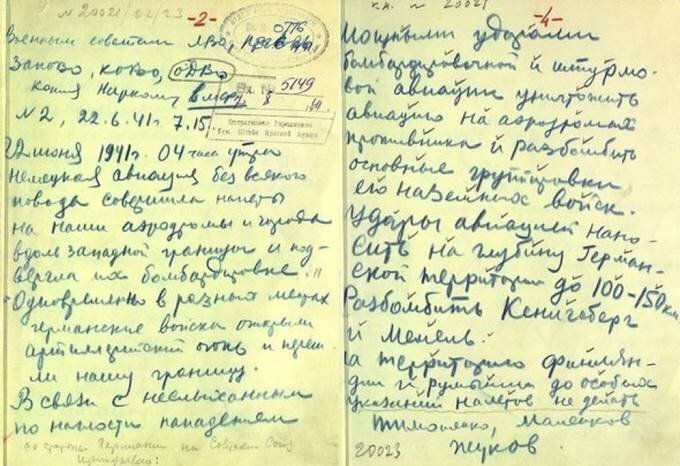 № 20021/02/23 -2-
Военным советам ЛВО, ПРИБОВО,
ЗАПОВО, КОВО, ОДВО
Копия Наркому в.мор. Вх. № 5149
Оперативное Управление
Ген. Штаба Красной Армии
№2, 22.6.41г 7.15
22 июня 1941г. 04 часа утра
немецкая авиация без всякого
повода совершила налеты
на наши аэродромы и города
вдоль западной границы и под-
вергла их бомбардировке.
Одновременно в разных местах
германские войска открыли
артиллерийский огонь и переш-
ли нашу границу.
В связи с неслыханным
по наглости нападением
со стороны Германии на Советский Союз
-4-
Мощными ударами
бомбардировочной и штурмо-
вой авиации уничтожить
авиацию на аэродромах
противника и разбомбить
основные группировки
его наземных войск.
Удары авиацией нано-
сить на глубину Герман-
ской территории до 100-150 км.
Разбомбить Кенигсберг
и Мемель.
на территорию Финлян-
дии и Румынии до особых
указаний налетов не делать
Тимошенко, Маленков
20023 Жуков.